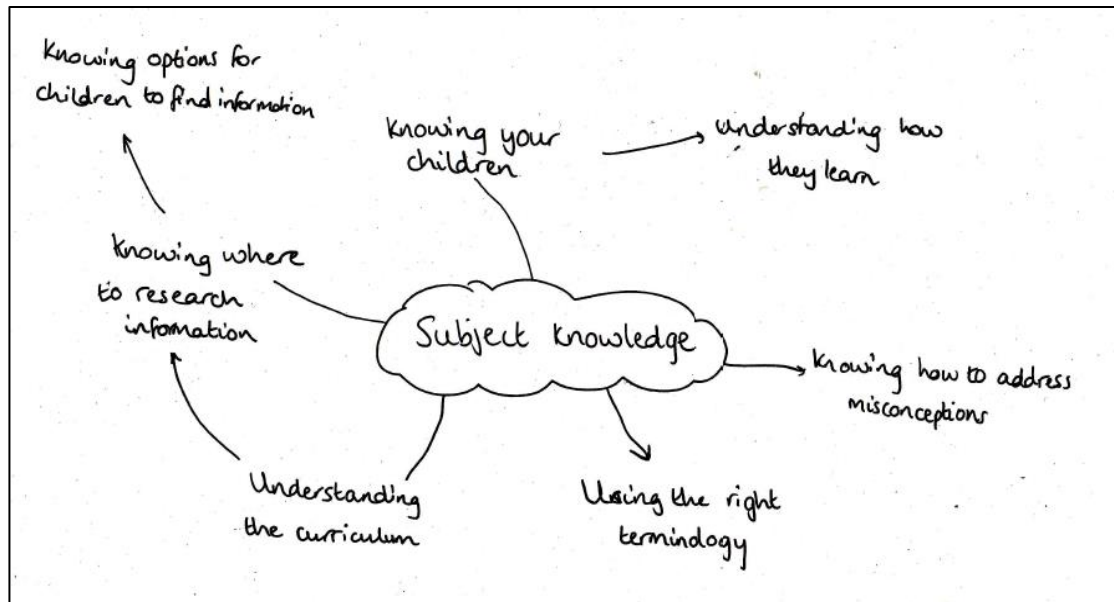 Knowing options for
children to find information
Knowing your
children
understanding how
they learn
Knowing where
to research
information
Subject Knowledge
Knowing how to address
misconceptions
Understanding
the curriculum
Using the right
terminology